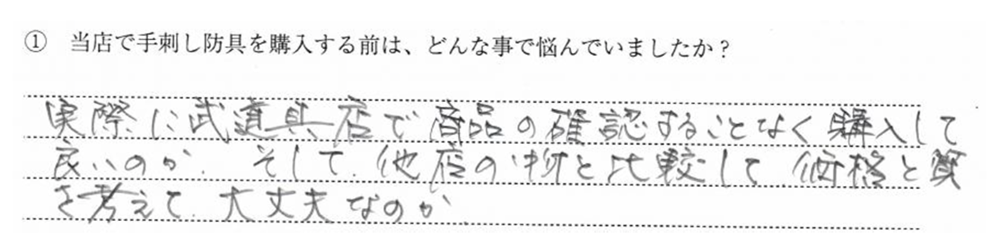 ① 当店で手刺し防具を購入する前は、どんな事で悩んでいましたか？
実際に武道具店で商品の確認することなく購入して
良いのか. そして. 他店の物と比較して 価格と質
を考えて. 大丈夫なのか.